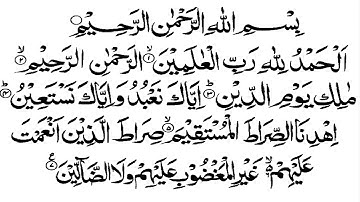 بِسْمِ اللهِ الرَّحْمٰنِ الرَّحِيْمِ ۝۱
اَلْحَمْدُ لِلّٰهِ رَبِّ الْعٰلَمِيْنَ ۝۱ الرَّحْمٰنِ الرَّحِيْمِ ۝۲
مٰلِكِ يَوْمِ الدِّيْنِ ۝۳ اِيَّاكَ نَعْبُدُ وَاِيَّاكَ نَسْتَعِيْنُ ۝۴
اِهْدِنَا الصِّرَاطَ الْمُسْتَقِيْمَ ۝۵ صِرَاطَ الَّذِيْنَ اَنْعَمْتَ
عَلَيْهِمْ ۝۶ غَيْرِ الْمَغْضُوْبِ عَلَيْهِمْ وَلَا الضَّآلِّيْنَ ۝۷